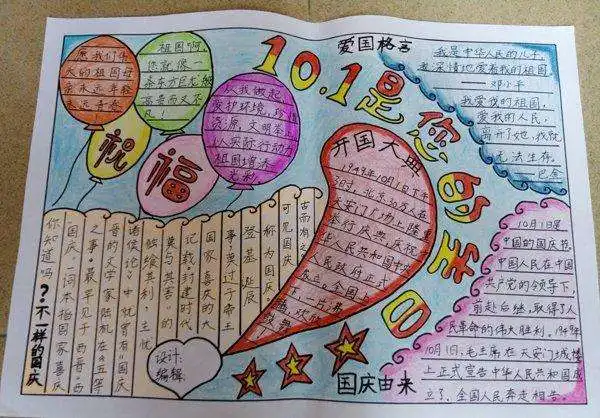 10.1是您的生日
愿我们伟
大的祖国母
亲永远年轻
永远青春!
祖国啊
你就像一
条东方巨龙巍
高贵而又不
凡!
从我做起
爱护环境,珍惜
资源,文明茶
以实际行动为
祖国增添
光彩
祝
福
爱国格言
我是中华人民的儿子,
我深情地爱着我的祖国
邓小平
我爱我的祖国,
爱我的人民,
离开了她,我就
无法生存,
巴金
开国大典
1949年10月1日下午
3时,北京30万人在
天安门广场上隆重
举行庆典,庆祝
中华人民共和国中央
人民政府正式
成立。全国上
下,一片沸
腾,欢欣
鼓舞
你知道吗?不一样的国庆
国庆一词本指国家喜庆
之事,最早见于西晋。西
晋的文学家陆机在《五等
诸侯论》中就曾有“国庆
独飨其利,主忧
莫与其害”的
记载。封建时代
国家喜庆的大
事莫过于帝王
登基、诞辰
称为国庆
可见国庆
古而有之
设计:
编辑:
国庆由来
10月1日是
中国的国庆节
中国人民在中国
共产党的领导下,
前赴后继,取得了人
民革命的伟大胜利。1949年
10月1日,毛主席在天安门城楼
上正式宣告中华人民共和国成
立了,全国人民奔走相告。